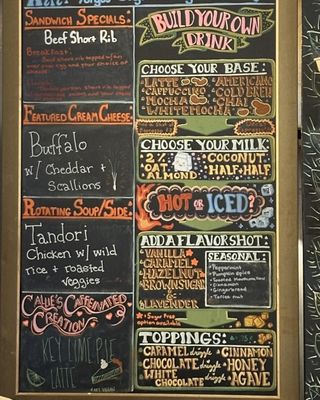 Sandwich Specials:
Beef Short Rib
Breakfast:
Featured Cream Cheese
Buffalo
w/ Cheddar +
Scallions
Rotating Soup/Side:
Tandori
Chicken w/ wild
rice + roasted
veggies
Callie's Caffeinated
Creation
KEY LIME PIE
LATTE
BUILD YOUR OWN
DRINK
CHOOSE YOUR BASE:
LATTE AMERICANO
CAPPUCCINO COLD BREW
MOCHA CHAI
WHITE MOCHA
CHOOSE YOUR MILK:
2% COCONUT
OAT HALF+HALF
ALMOND
HOT OR ICED?
ADD A FLAVOR SHOT:
VANILLA
CARAMEL
HAZELNUT
BROWN SUGAR
&
LAVENDER
* Sugar Free
option available
SEASONAL:
Peppermint
Pumpkin Spice
Toasted Marshmallow
Cinnamon
Gingerbread
Toffee nut
TOPPINGS:
CARAMEL drizzle CINNAMON
CHOCOLATE drizzle HONEY
WHITE AGAVE
CHOCOLATE drizzle